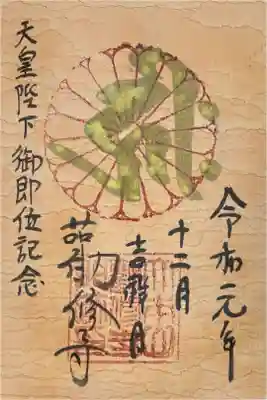 令和元年
十二月
吉祥日
勧修寺
天皇陛下御即位記念